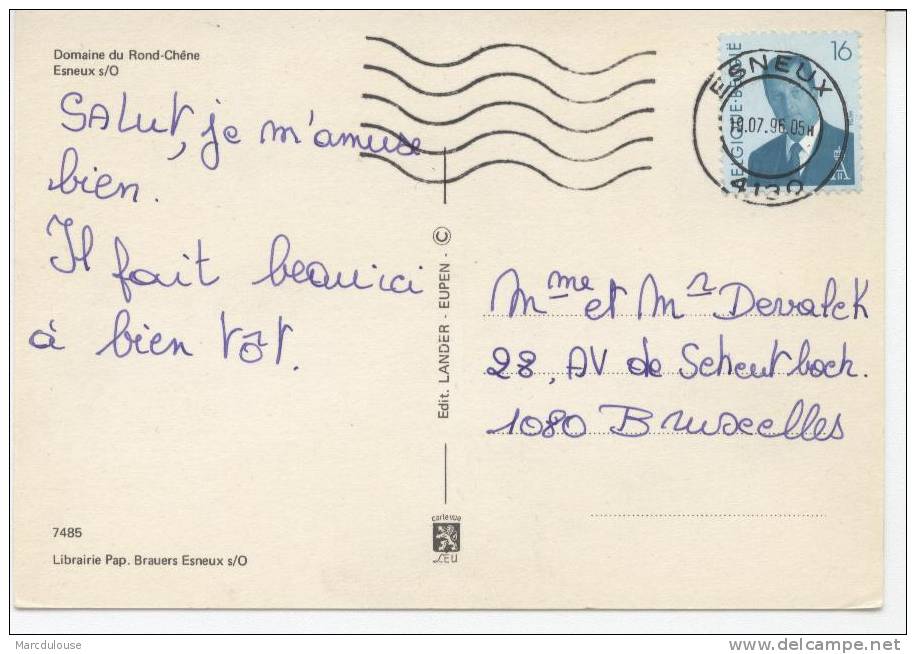 Domaine du Rond-Chêne
Esneux s/O
SALUT, je m'amuse
bien.
Il fait beau ici
à bien tôt.
7485
Librairie Pap. Brauers Esneux s/O
Edit. LANDER - EUPEN - ©
carte vue
LEU
BELGIQUE·BELGIË
16
ESNEUX
19.07.96.05H
4130
Mme et Mr Devalck
28, AV de Scheutbosch.
1080 Bruxelles
Marcdulouse
www.delcampe.net